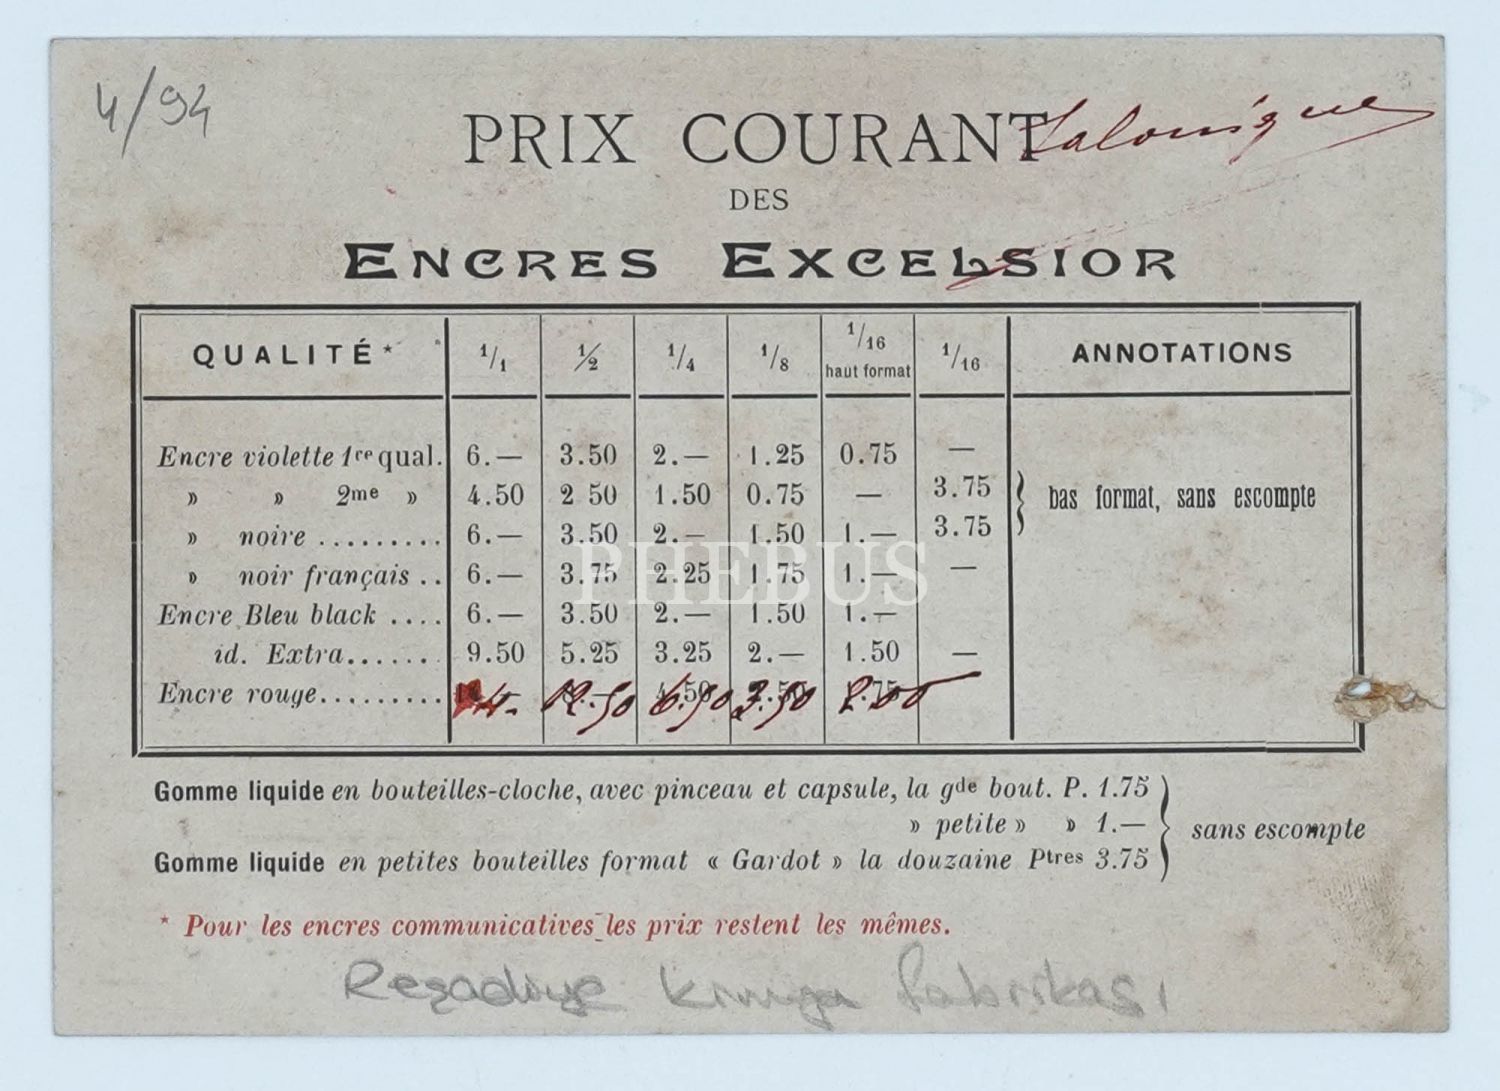 4/94
PRIX COURANT Salonique
DES
ENCRES EXCELSIOR
QUALITÉ* 1/1 1/2 1/4 1/8 1/16 haut format 1/16 ANNOTATIONS
Encre violette 1re qual. 6.— 3.50 2.— 1.25 0.75 —
» » 2me » 4.50 2 50 1.50 0.75 — 3.75
bas format, sans escompte
» noire ......... 6.— 3.50 2.— 1.50 1.— 3.75
» noir français .. 6.— 3.75 2.25 1.75 1.— —
PHEBUS
Encre Bleu black .... 6.— 3.50 2.— 1.50 1.—
id. Extra....... 9.50 5.25 3.25 2.— 1.50 —
Encre rouge......... 12.50 6.50 3.50 2.00
Gomme liquide en bouteilles-cloche, avec pinceau et capsule, la gde bout. P. 1.75
» petite » » 1.— sans escompte
Gomme liquide en petites bouteilles format « Gardot » la douzaine Ptres 3.75
* Pour les encres communicatives les prix restent les mêmes.
fabrikası